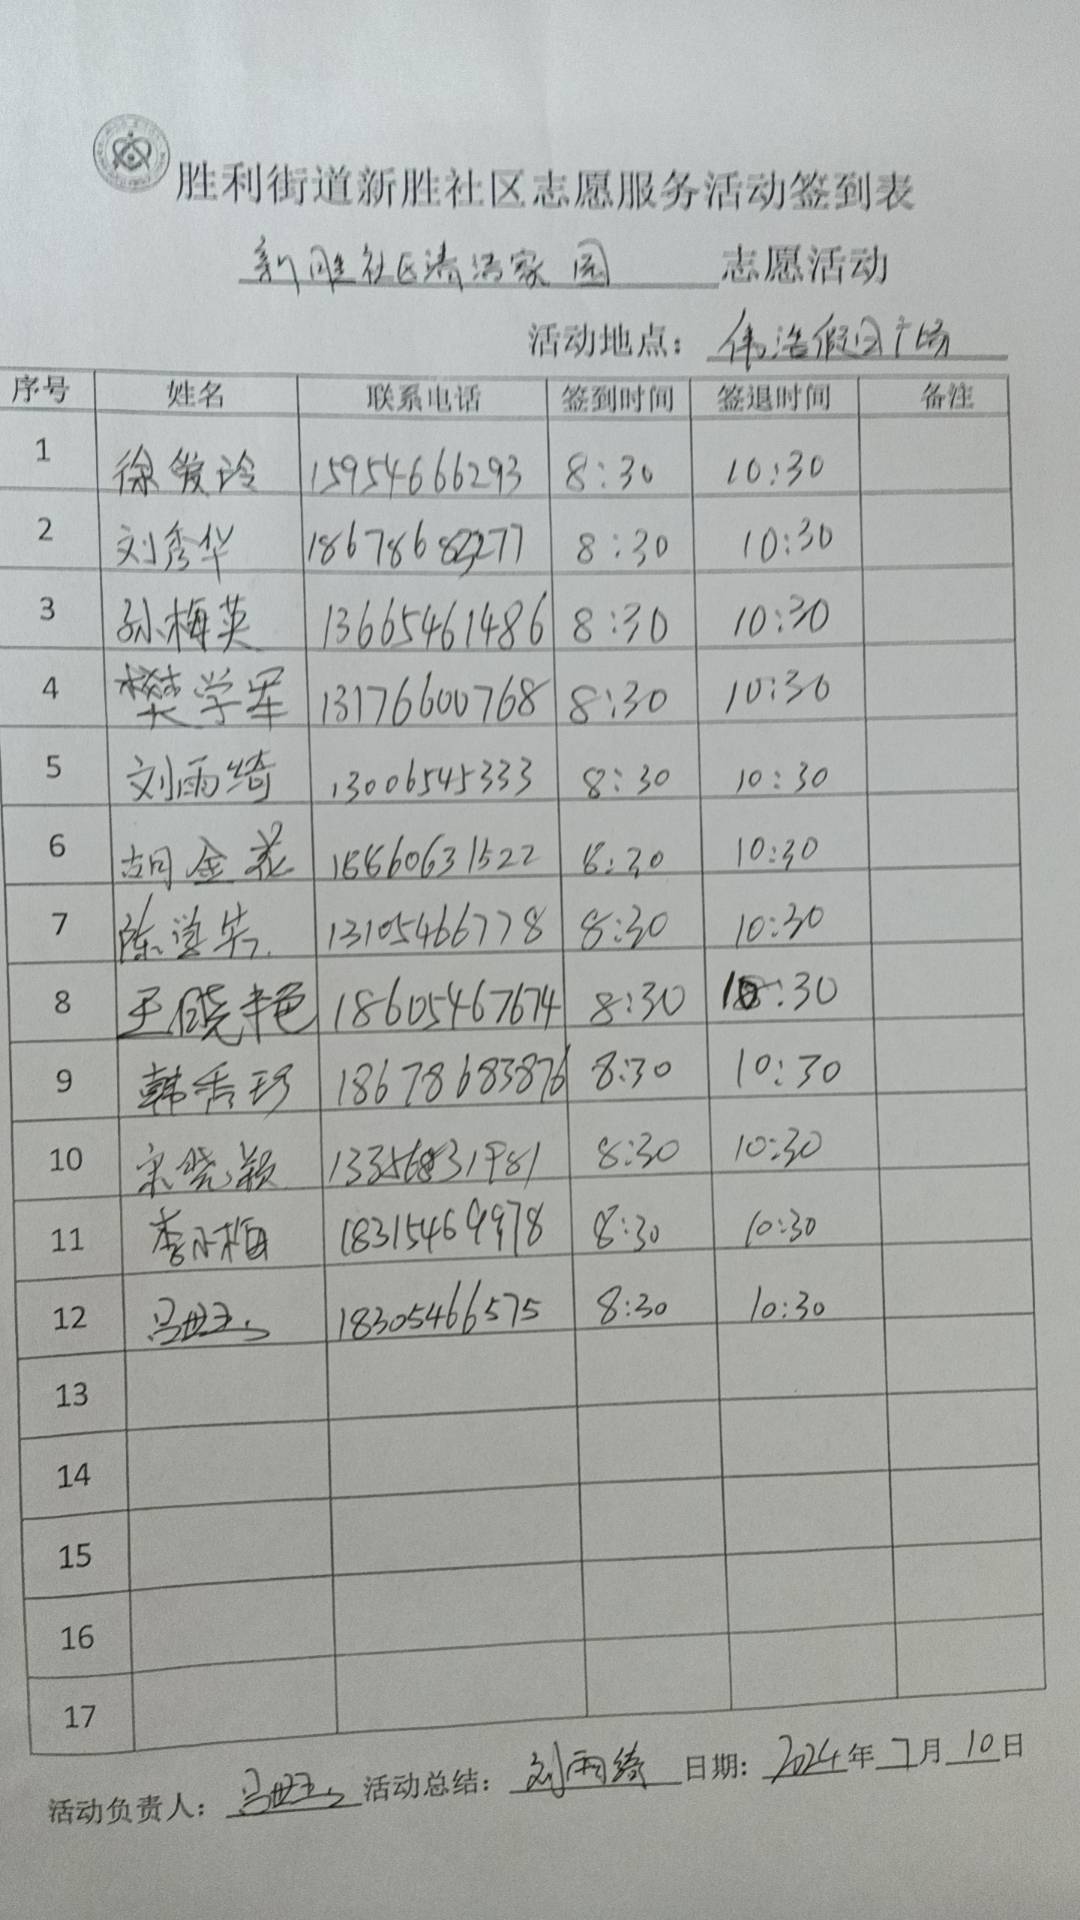 胜利街道新胜社区志愿服务活动签到表
新胜社区清洁家园 志愿活动
活动地点：伟浩假日广场
序号 姓名 联系电话 签到时间 签退时间 备注
1 徐爱玲 15954666293 8:30 10:30
2 刘秀华 8:30 10:30
3 孙梅英 13665461486 8:30 10:30
4 樊学军 13176600768 8:30 10:30
5 刘雨绮 13006545333 8:30 10:30
6 胡金花 8:30 10:30
7 13105466778 8:30 10:30
8 王晓艳 18605467674 8:30 10:30
9 韩香珍 18678683876 8:30 10:30
10 宋晓颖 8:30 10:30
11 李小梅 18315469978 8:30 10:30
12 18305466575 8:30 10:30
13
14
15
16
17
活动负责人： 活动总结：刘雨绮 日期：2024年7月10日